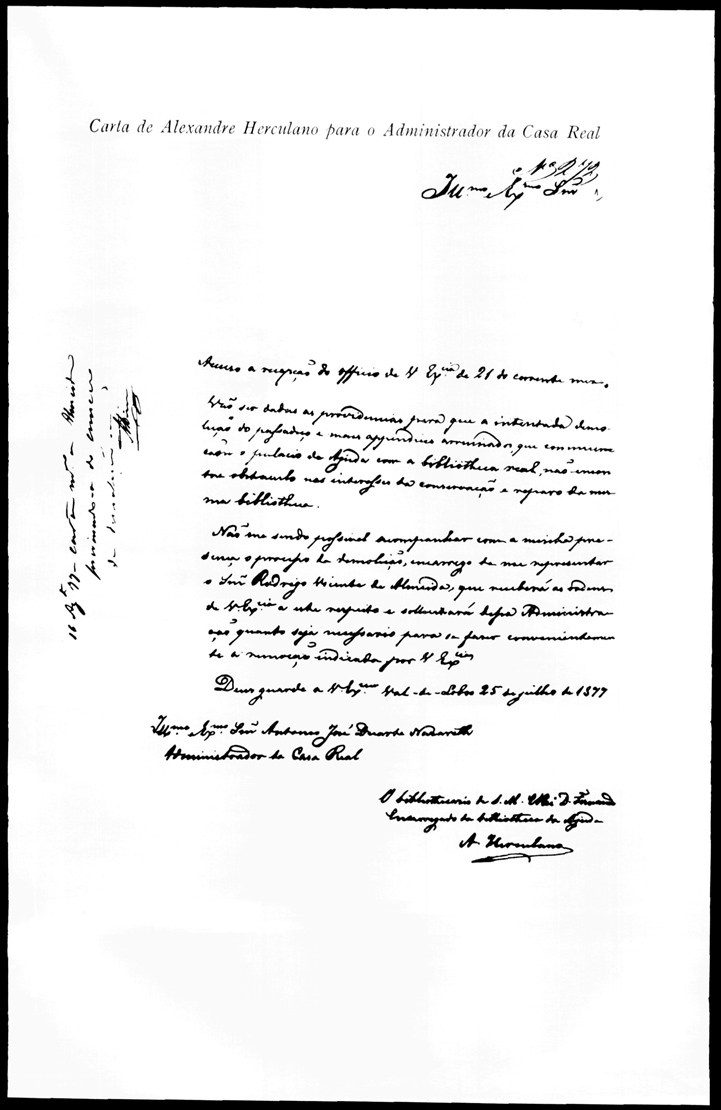 Carta de Alexandre Herculano para o Administrador da Casa Real
Ill.mo e Ex.mo Snr
Accuso a recepção do officio de V Ex.cia de 21 do corrente mez.
Vão ser dadas as providencias para que a intentada demo-
lução do passadiço e mais appendices arruinados, que communi-
cão o palacio da Ajuda com a bibliotheca real, não encon-
tre obstaculo nos interesses da conservação e reparo da mes-
ma bibliotheca.
Não me sendo possivel acompanhar com a minha pre-
sença o processo da demolição, encarrego de me representar
o Snr Rodrigo Vicente de Almeida, que receberá as ordens
de V. Ex.cia a este respeito e sollicitará dessa Administra-
ção quanto seja necessario para se fazer convenientemen-
te a remoção indicada por V Ex.cia
Deus guarde a V. Ex.cia Val-de-Lobos 25 de julho de 1877
Ill.mo Ex.mo Snr Antonio José Duarte Nazareth
Administrador da Casa Real
O bibliothecario de S. M. ElRei D. Fernando
Encarregado da bibliotheca da Ajuda
A Herculano